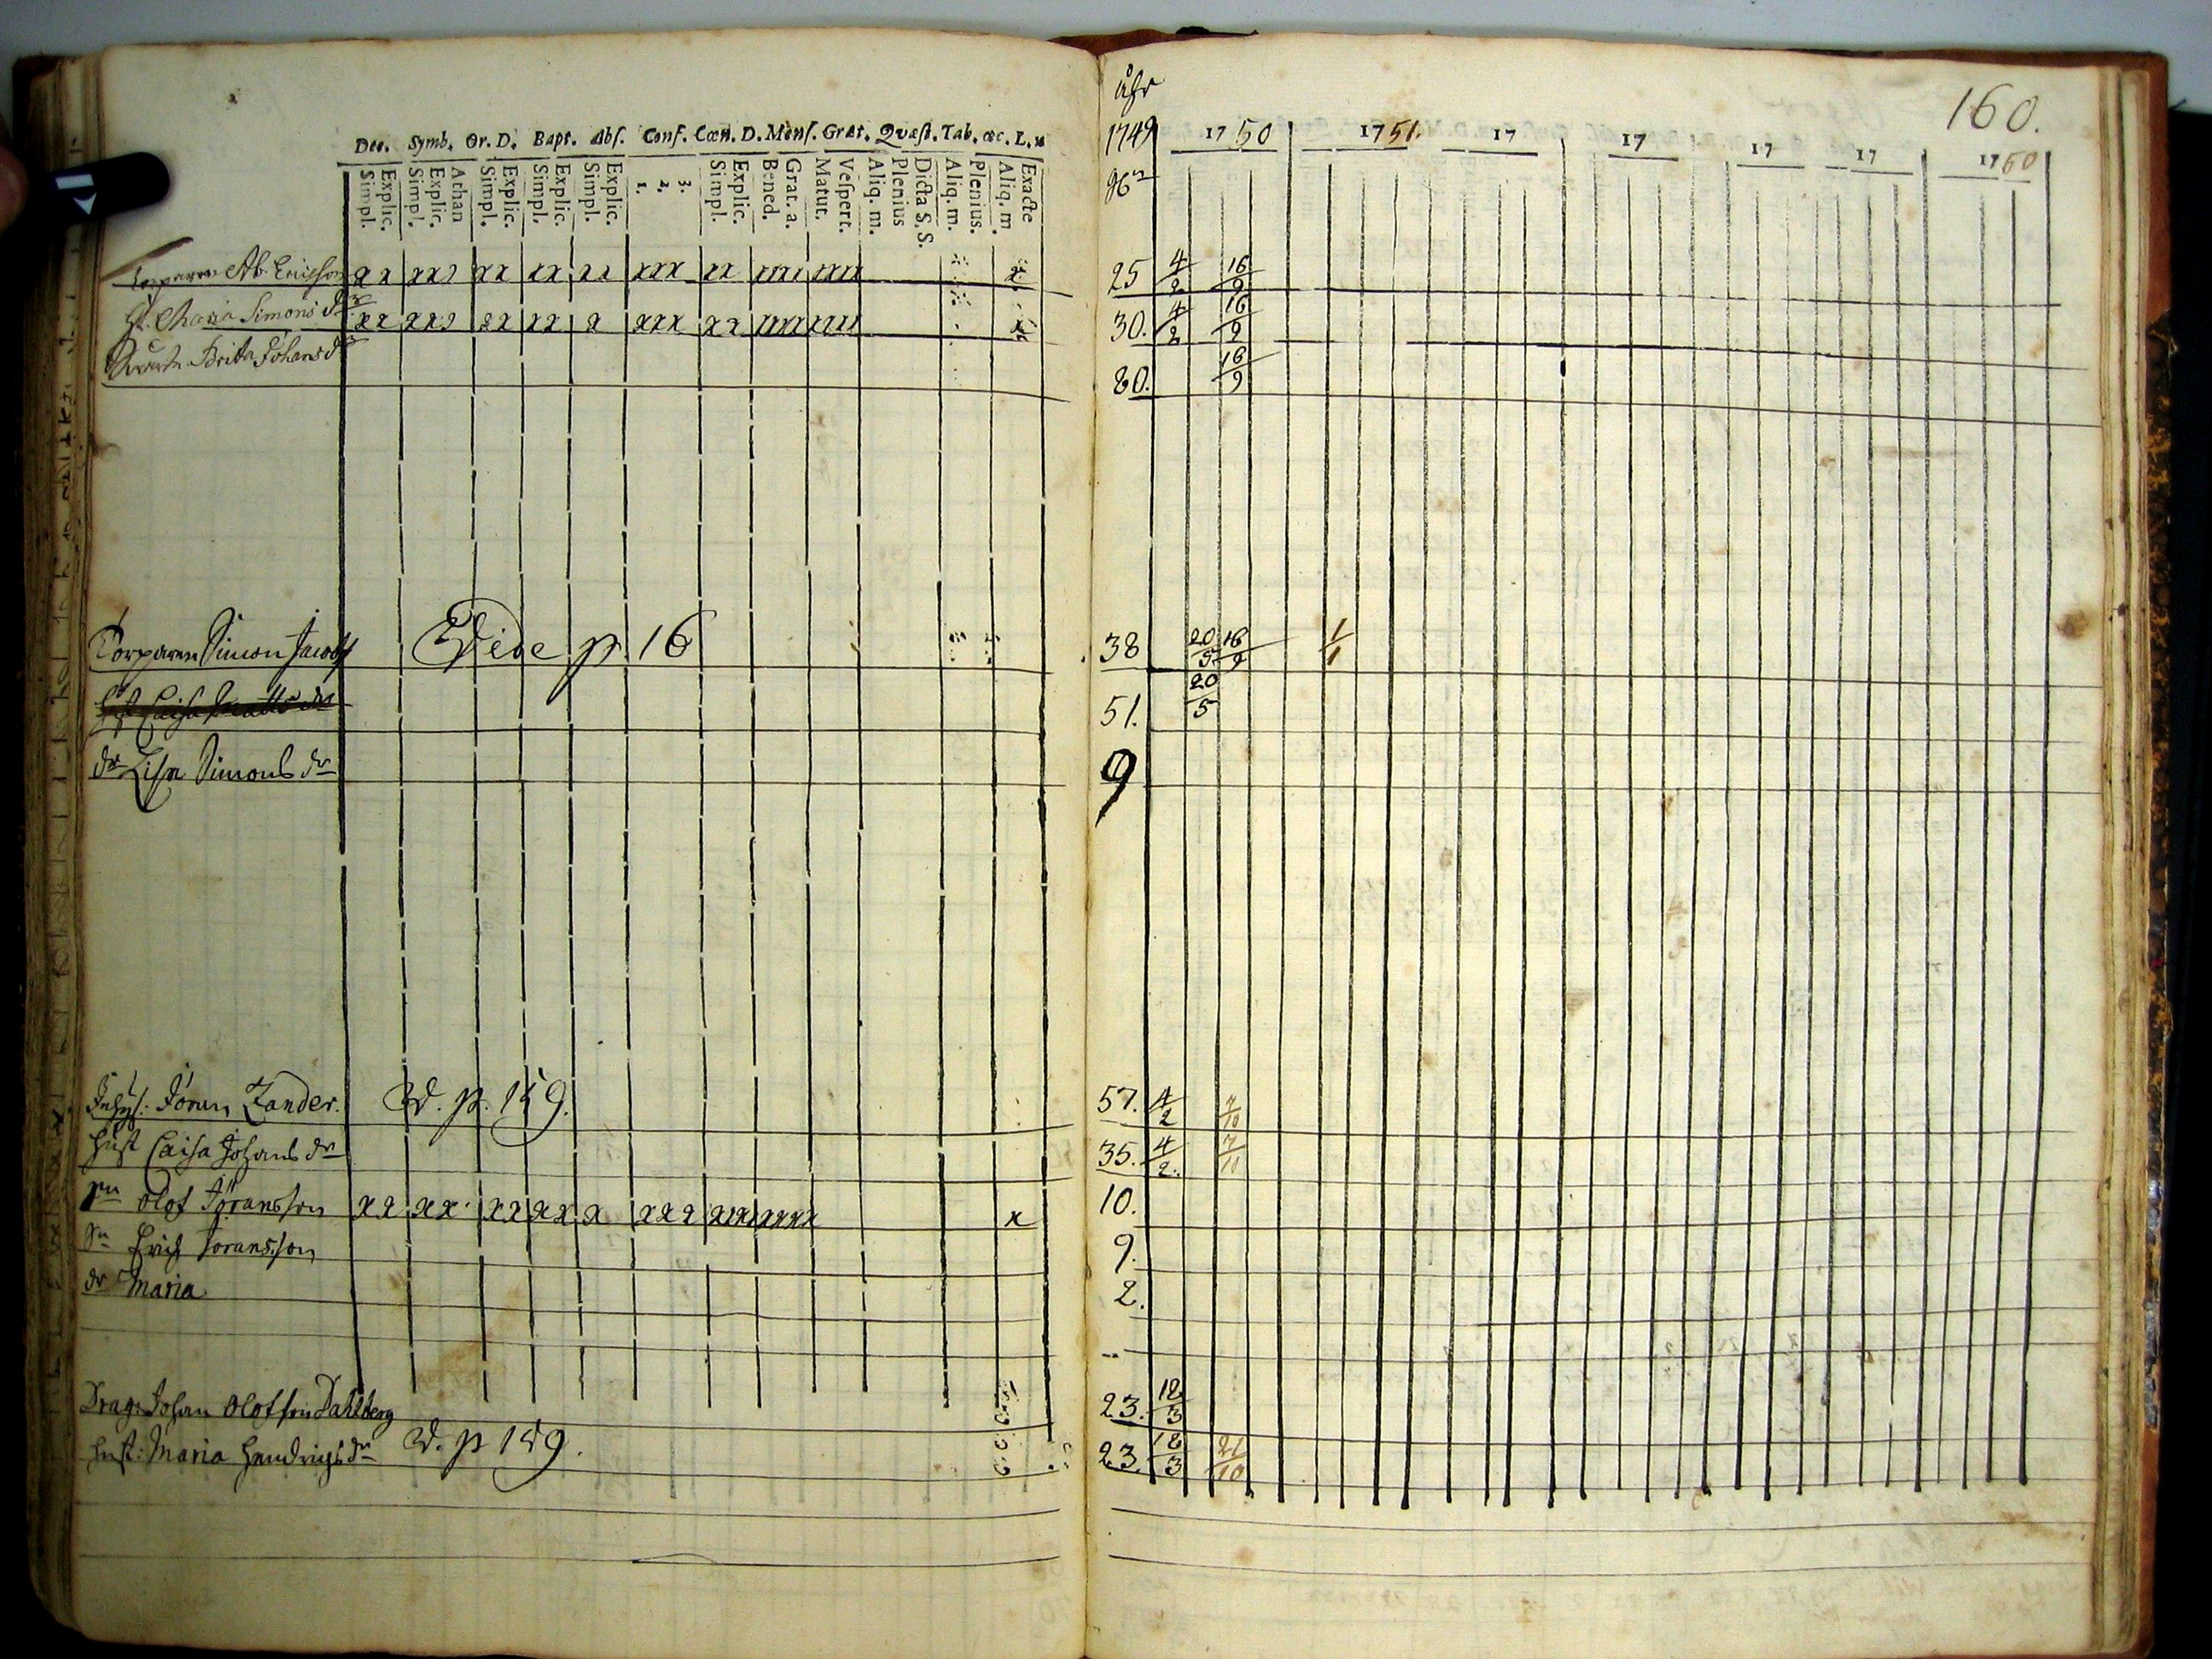 åhr
160.
Dec. Symb. Or. D. Bapt. Abs. Conf. Cœn. D. Mens. Grat. Quæst. Tab. œc. L. n
1749 1750 1751. 17 17 17 17 1760
Simpl. Explic. Simpl. Explic. Athan Simpl. Explic. Simpl. Explic. Simpl. Explic. 1. 2. 3. Simpl. Explic. Bened. Grat. a. Matut. Vespert. Aliq. m. Plenius Dicta S. S. Aliq. m. Plenius. Aliq. m. Exacte
Torparen Ab. Ericsson xx xx xx xx xx xxx xx x 25 4/2 16/9
H. Maria Simons dr xx xx xx xx x xxx xx x 30. 4/2 16/9
Brita Johansdr 80. 16/9
Torparen Simon Jacobs Vide p. 16 38 20/5 16/9 1/1
Hust Caisa Matts dr 51. 20/5
dr Lisa Simons dr 9
Inhys: Jöran Zander. V. p. 159. 57. 4/2 7/10
Hust Caisa Johans dr 35. 4/2. 7/10
sn Olof Jöransson xx xx xx xx x xxx x 10.
sn Erich Joransson 9.
dr Maria 2.
Drag: Johan Olofson Dahlberg 23. 18/3
Hust: Maria Hendrichs dr V. p 159. 23. 18/3 21/10